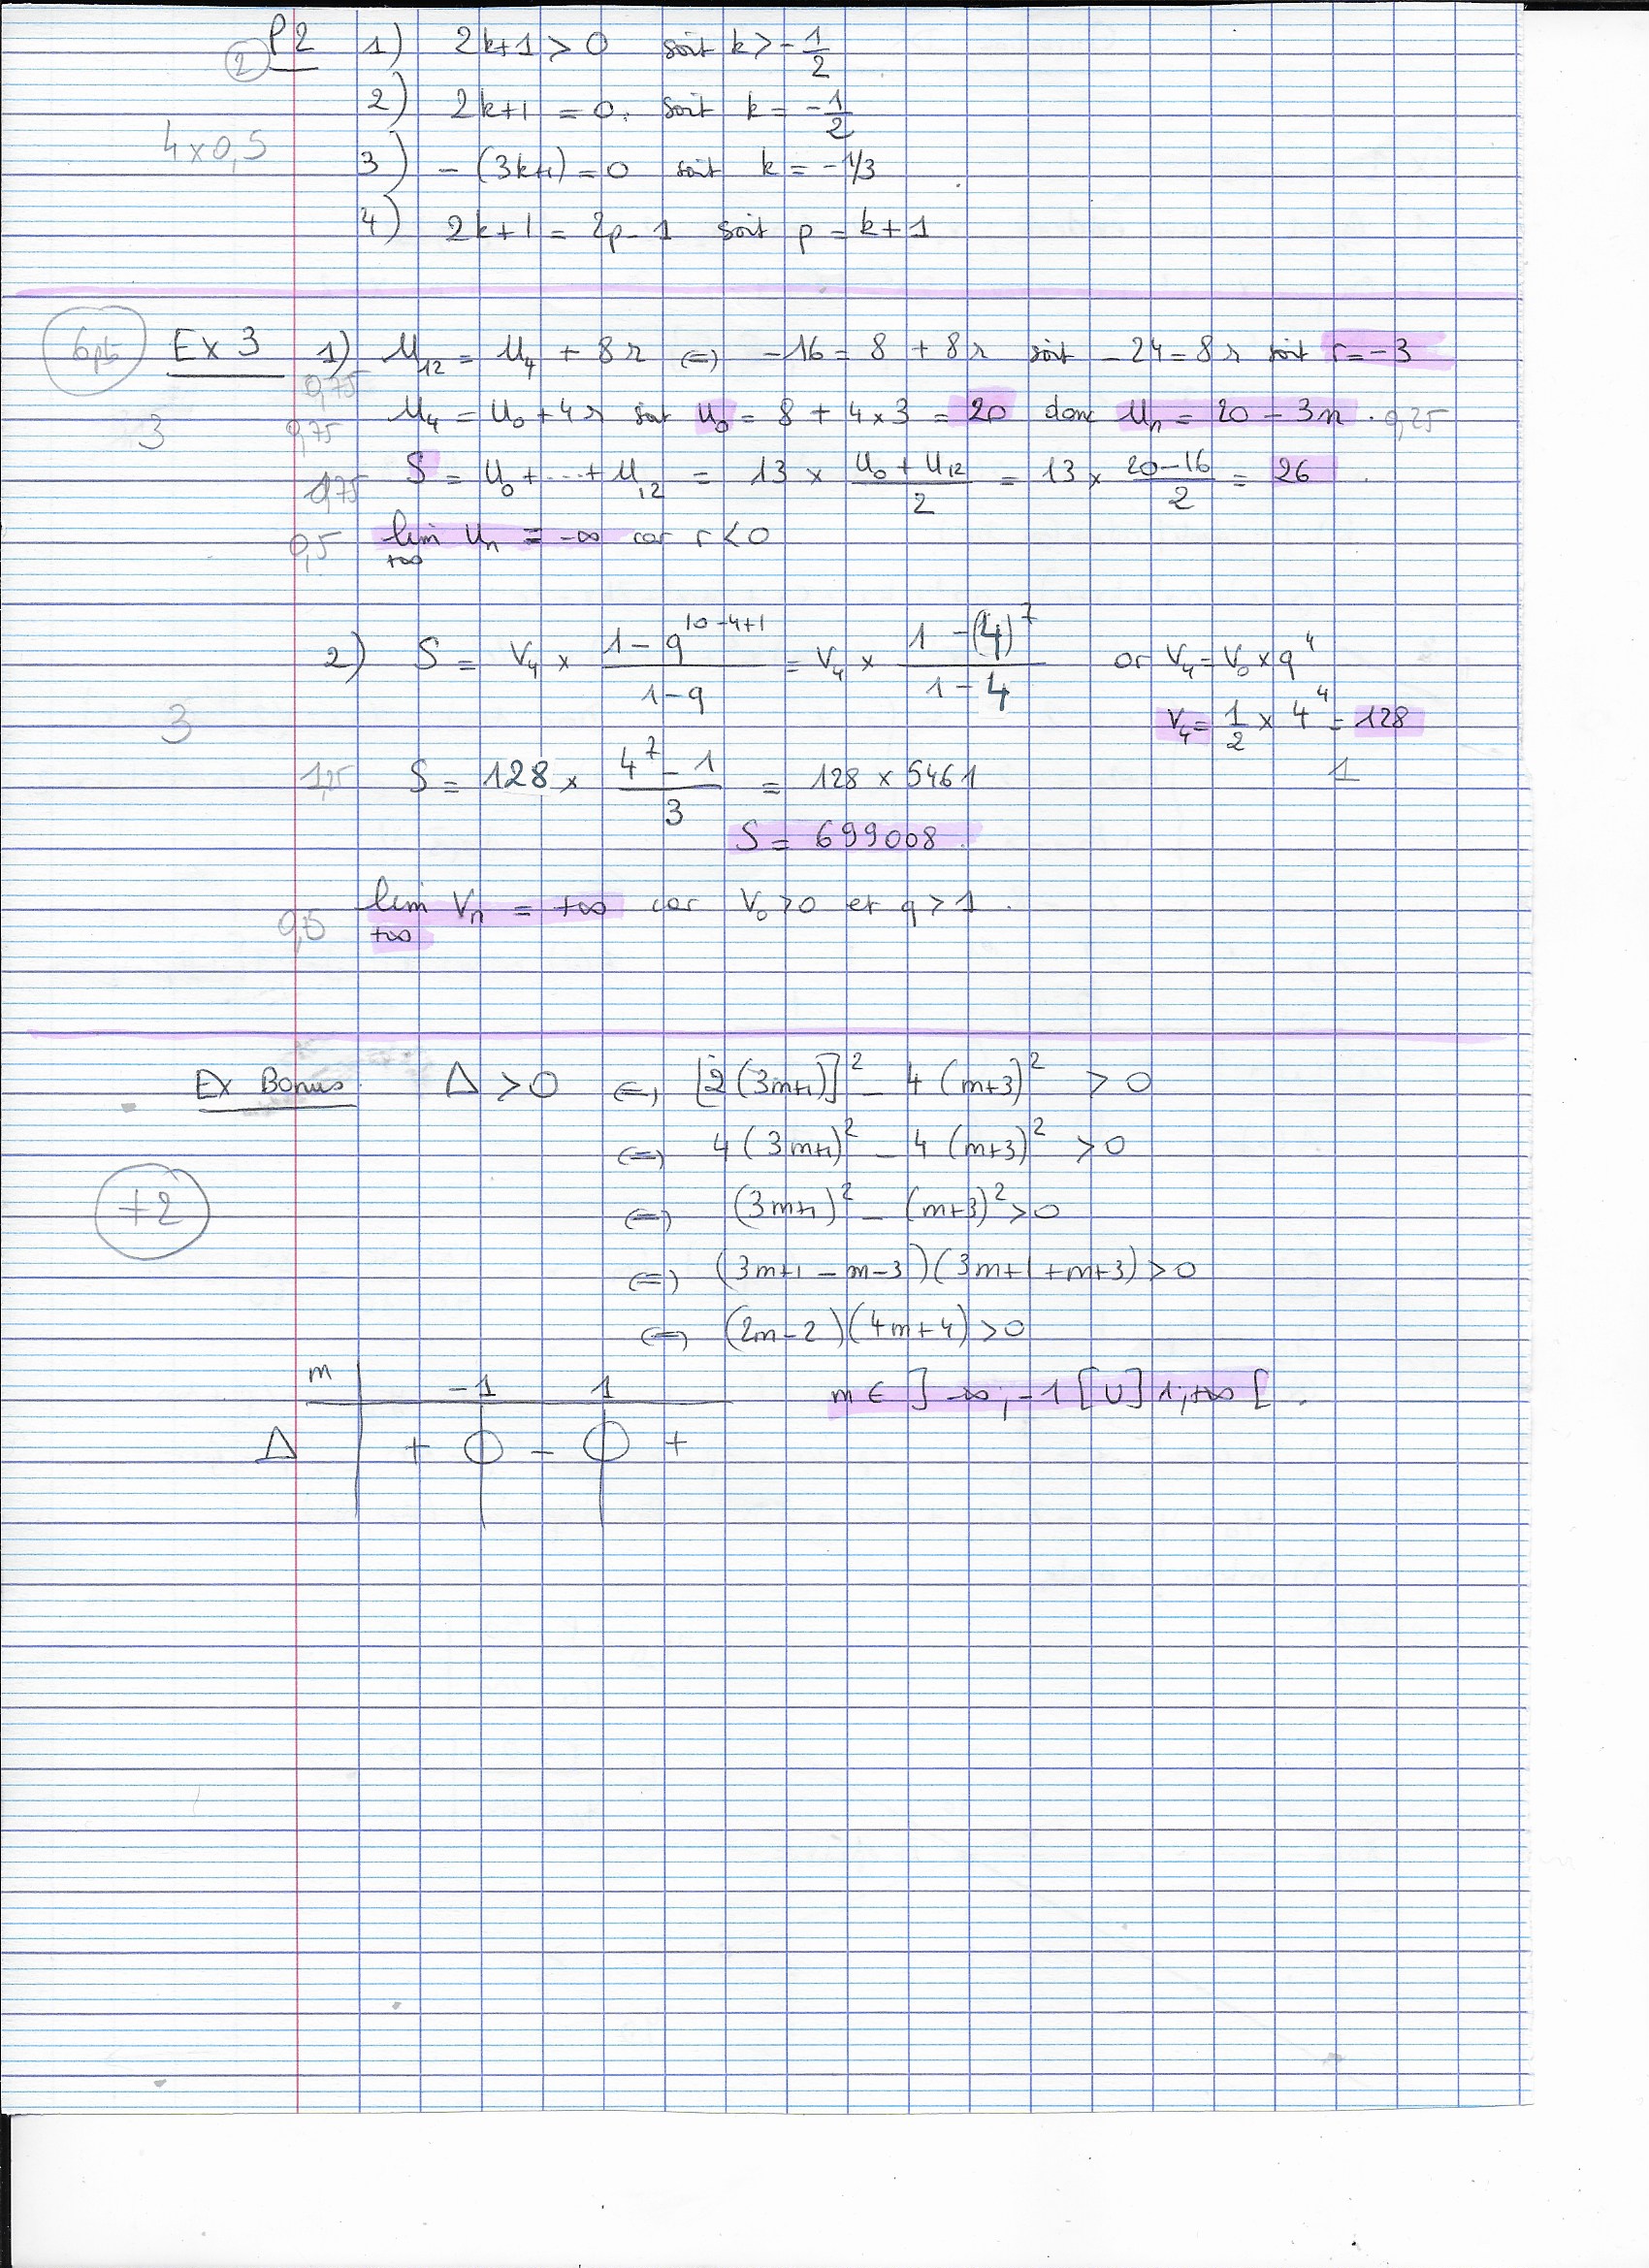 ② P2 1) 2k+1 > 0 soit k > -1/2
2) 2k+1 = 0. soit k = -1/2
4x0,5
3) -(3k+1) = 0 soit k = -1/3
4) 2k+1 = 2p-1 soit p = k+1
6pts Ex 3 1) U₁₂ = U₄ + 8r ⇔ -16 = 8 + 8r soit -24 = 8r soit r = -3
0,75
3 0,75 U₄ = U₀ + 4r soit U₀ = 8 + 4x3 = 20 donc Uₙ = 20 - 3n. 0,25
0,75 S = U₀ + ... + U₁₂ = 13 x (U₀ + U₁₂)/2 = 13 x (20-16)/2 = 26
0,5 lim Uₙ = -∞ car r < 0
+∞
2) S = V₄ x (1 - q^(10-4+1))/(1-q) = V₄ x (1 - (4)⁷)/(1-4) or V₄ = V₀ x q⁴
3 V₄ = 1/2 x 4⁴ = 128
1
1,25 S = 128 x (4⁷ - 1)/3 = 128 x 5461
S = 699008
0,5 lim Vₙ = +∞ car V₀ > 0 et q > 1.
+∞
Ex Bonus. Δ > 0 ⇔ [2(3m+1)]² - 4(m+3)² > 0
⇔ 4(3m+1)² - 4(m+3)² > 0
+2 ⇔ (3m+1)² - (m+3)² > 0
⇔ (3m+1-m-3)(3m+1+m+3) > 0
⇔ (2m-2)(4m+4) > 0
m -1 1 m ∈ ]-∞;-1[ U ]1;+∞[.
Δ + 0 - 0 +